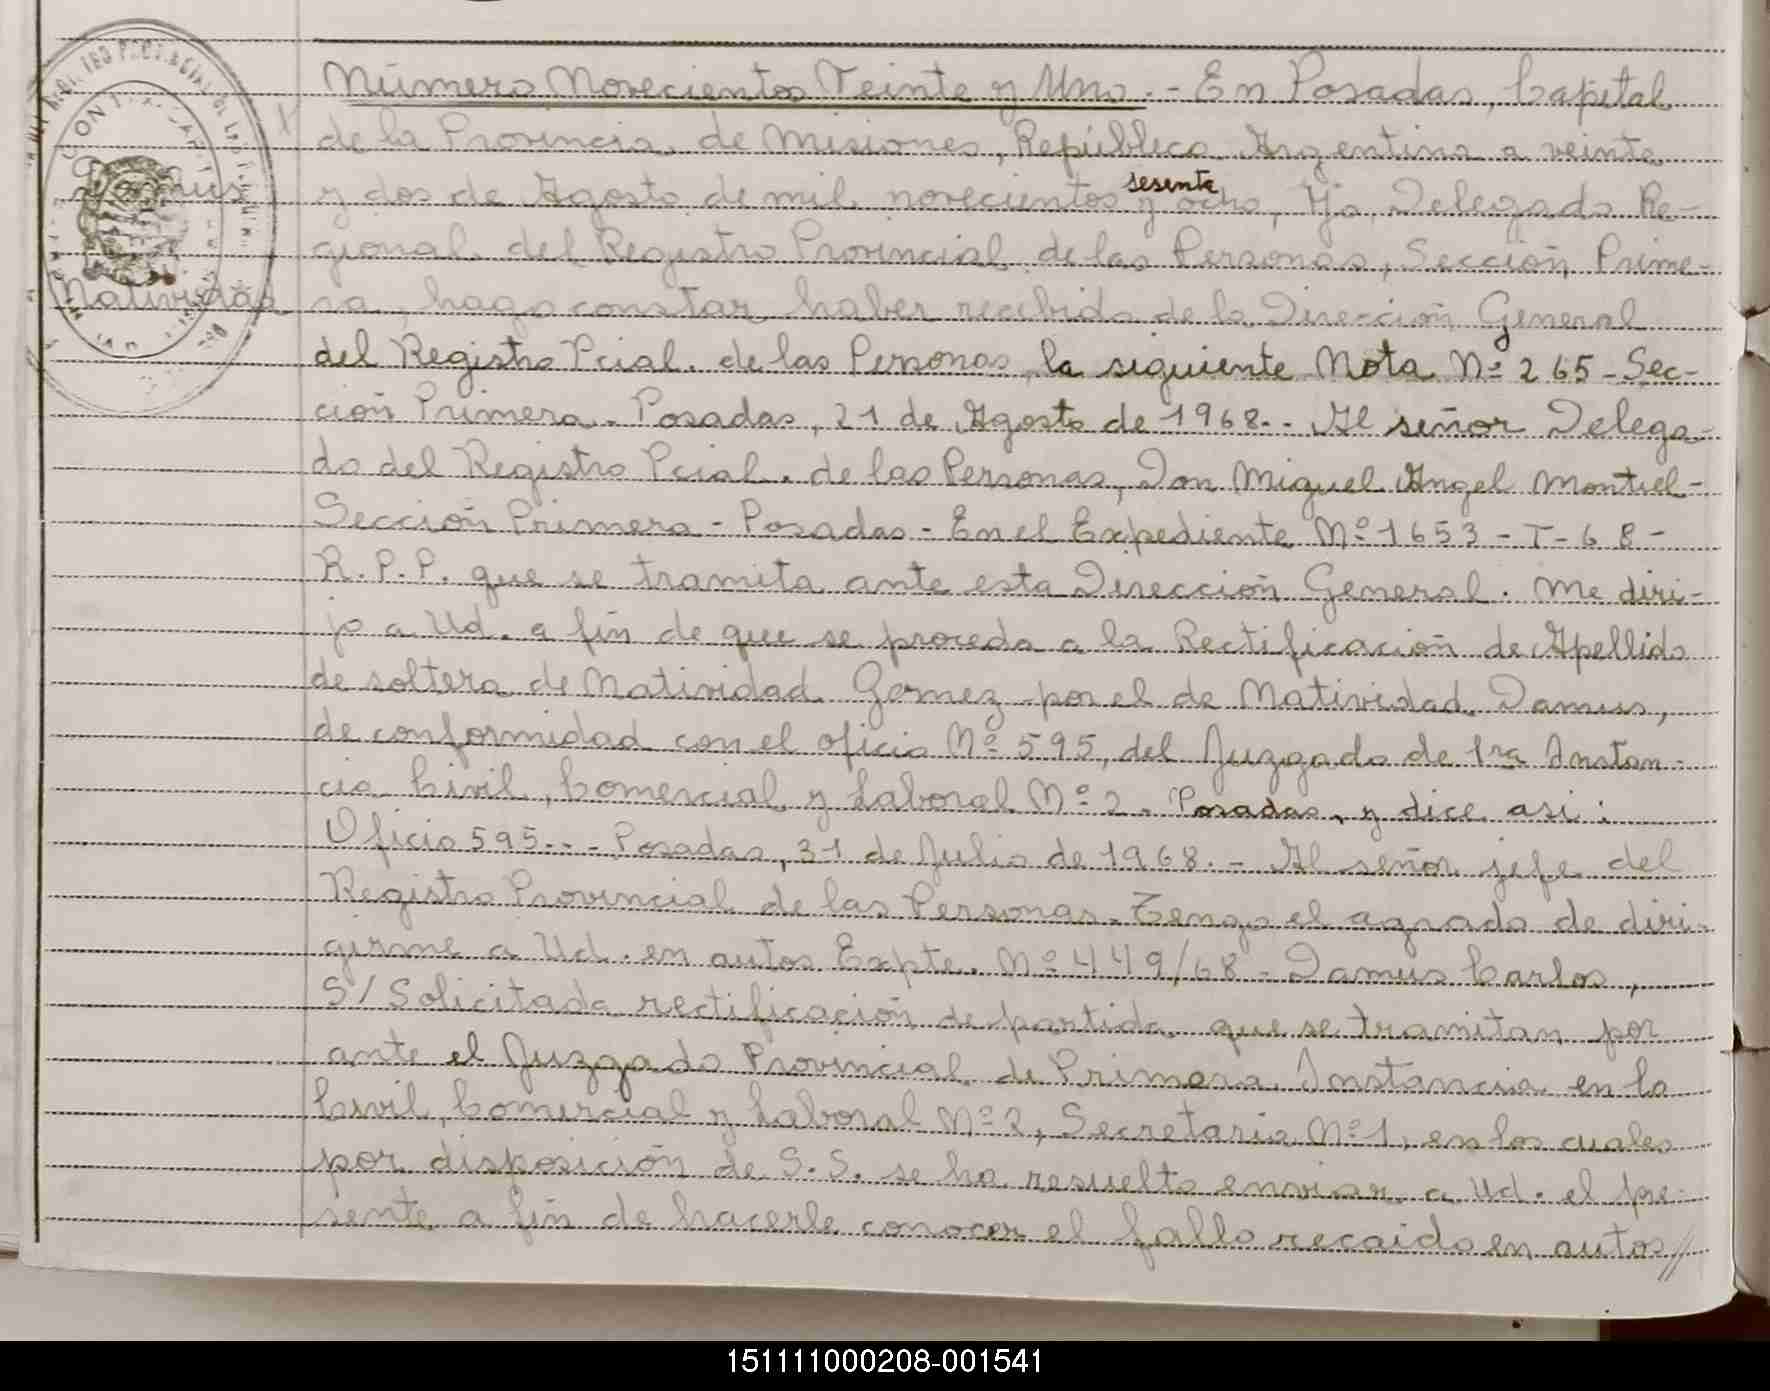 Número Novecientos Veinte y Uno.- En Posadas, Capital
de la Provincia de Misiones, República Argentina a veinte
Damus
sesenta
y dos de Agosto de mil novecientos y ocho, Yo, Delegado Re-
gional del Registro Provincial de las Personas, Sección Prime-
Natividad
ra, hago constar haber recibido de la Dirección General
del Registro Pcial. de las Personas la siguiente Nota Nº 265-Sec-
ción Primera. Posadas, 21 de Agosto de 1968.- Al señor Delega-
do del Registro Pcial. de las Personas, Don Miguel Angel Montiel-
Sección Primera - Posadas - En el Expediente Nº 1653 - T - 68 -
R.P.P. que se tramita ante esta Dirección General. Me diri-
jo a Ud. a fin de que se proceda a la Rectificación de Apellido
de soltera de Natividad Gomez por el de Natividad Damus,
de conformidad con el oficio Nº 595, del Juzgado de 1ra Instan-
cia Civil, Comercial y Laboral Nº 2. Posadas, y dice asi:
Oficio 595.-- Posadas, 31 de Julio de 1968.- Al señor jefe del
Registro Provincial de las Personas. Tengo el agrado de diri-
girme a Ud. en autos Expte. Nº 449/68 - Damus Carlos,
S/ Solicitada rectificación de partida que se tramitan por
ante el Juzgado Provincial de Primera Instancia en lo
Civil, Comercial y Laboral Nº 2, Secretaria Nº 1, en los cuales
por disposición de S.S. se ha resuelto enviar a Ud. el pre-
sente a fin de hacerle conocer el fallo recaido en autos//
151111000208-001541